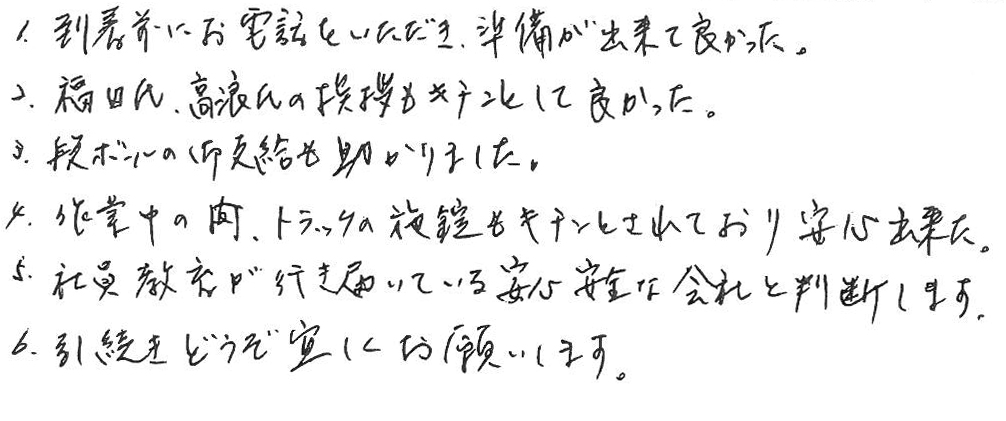 1. 到着前にお電話をいただき、準備が出来て良かった。
2. 福田氏、高浪氏の挨拶もキチンとして良かった。
3. 段ボールの御支給も助かりました。
4. 作業中の間、トラックの施錠もキチンとされており安心出来た。
5. 社員教育が行き届いている安心安全な会社と判断します。
6. 引続きどうぞ宜しくお願いします。